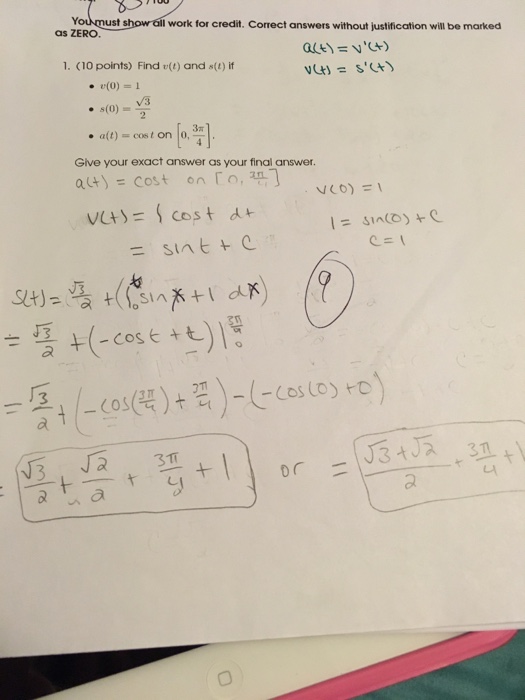 You must show all work for credit. Correct answers without justification will be marked
as ZERO.
a(t) = v'(t)
v(t) = s'(t)
1. (10 points) Find v(t) and s(t) if
• v(0) = 1
• s(0) = √3/2
• a(t) = cos t on [0, 3π/4].
Give your exact answer as your final answer.
a(t) = cost on [0, 3π/4]
v(0) = 1
v(t) = ∫ cost dt
1 = sin(0) + C
= sint + C
C = 1
9
s(t) = √3/2 + (∫₀ᵗ sin x + 1 dx)
= √3/2 + (-cost + t) |₀^(3π/4)
= √3/2 + (-cos(3π/4) + 3π/4) - (-cos(0) + 0)
= √3/2 + √2/2 + 3π/4 + 1 or = (√3 + √2)/2 + 3π/4 + 1